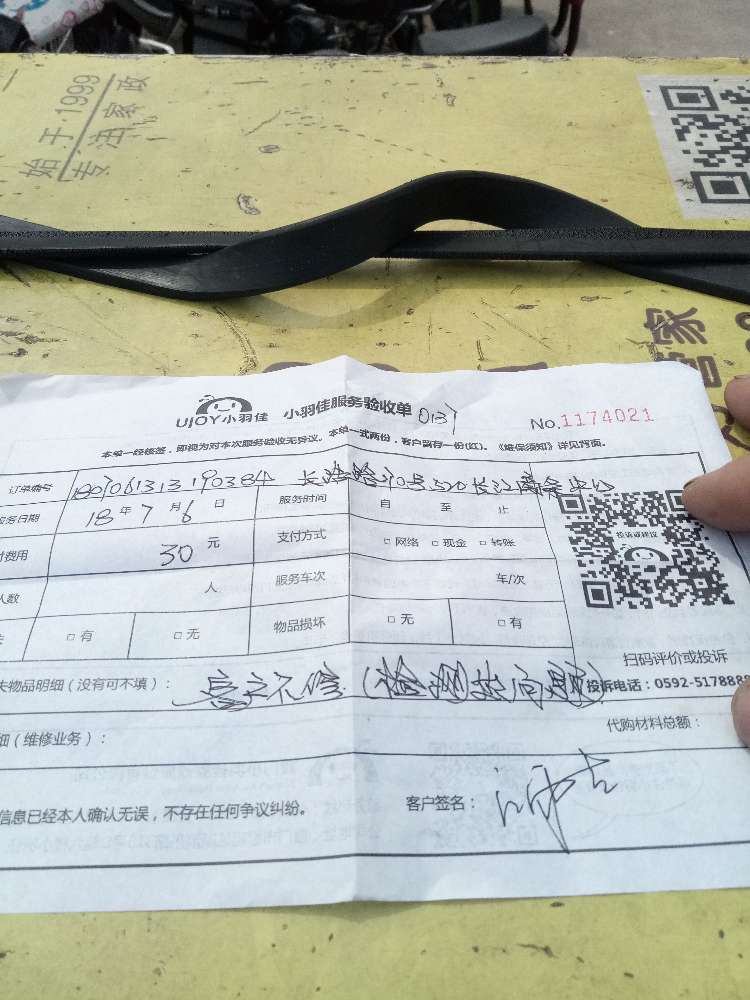 始于·1999
专注家政
管家
UJOY小羽佳 小羽佳服务验收单 0137
No.1174021
本单一经核签，即视为对本次服务验收无异议。本单一式两份，客户留存一份(红)。《维保须知》详见背面。
订单编号 180706131390384 长浩路 220 长江商务中心
务日期 18 年 7 月 6 日 服务时间 自 至 止
付费用 30 元 支付方式 □ 网络 □ 现金 □ 转账
人数 人 服务车次 车/次
□ 有 □ 无 物品损坏 □ 无 □ 有
投诉或建议
扫码评价或投诉
失物品明细（没有可不填）： 客户不修（检测其问题）
投诉电话：0592-5178888
细（维修业务）： 代购材料总额：
信息已经本人确认无误，不存在任何争议纠纷。 客户签名：